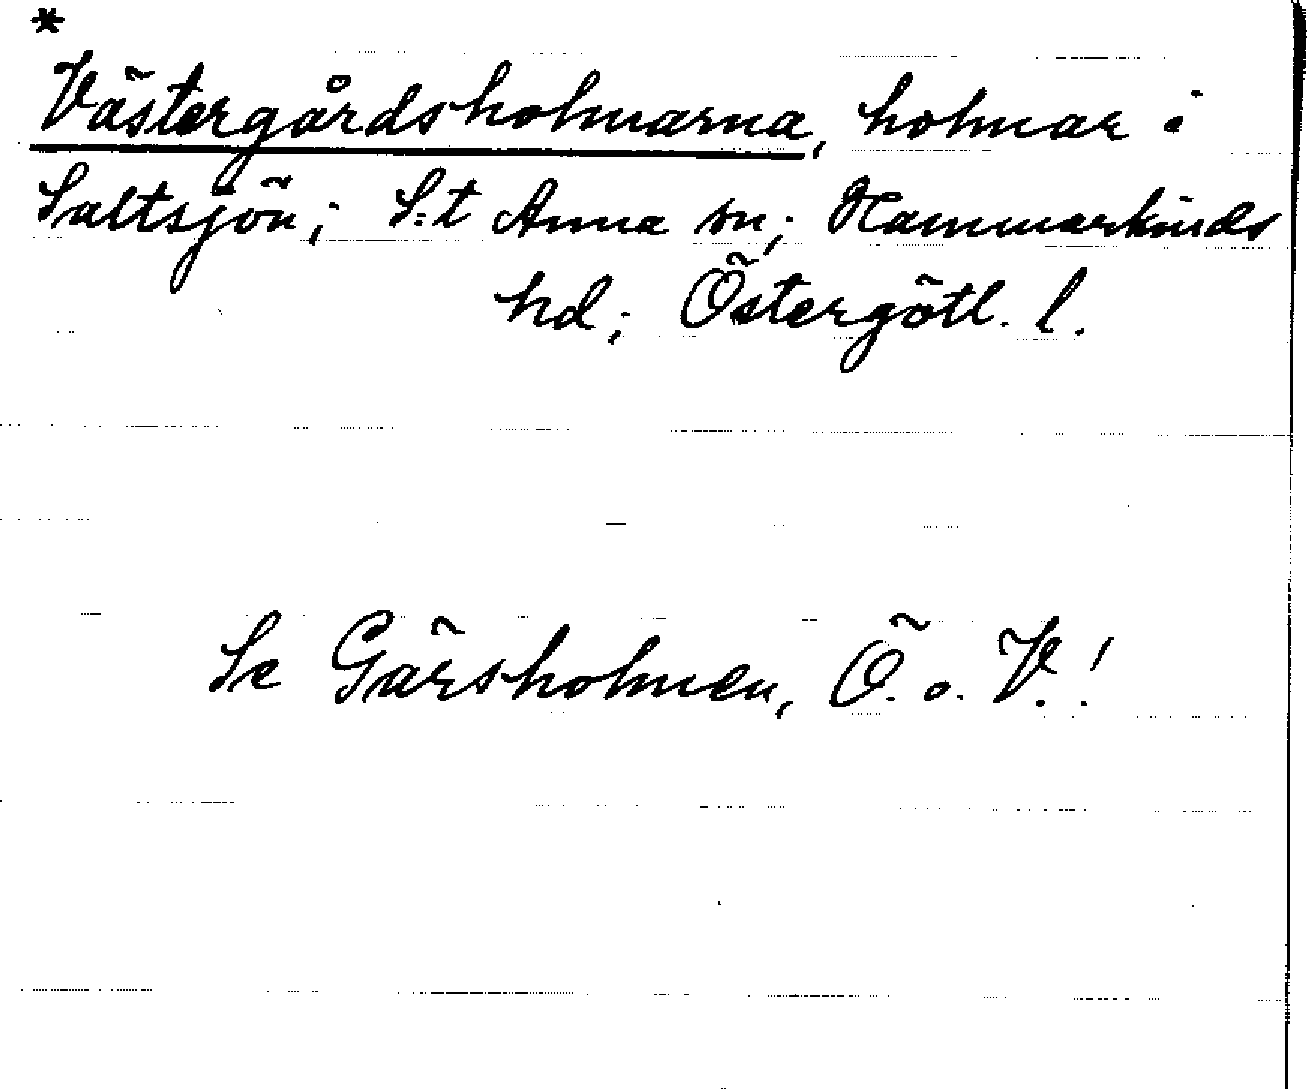 *
Västergårdsholmarna, holmar i
Saltsjön; S:t Anna sn; Hammarkinds
hd; Östergötl. l.
Se Gärsholmen, Ö. o. V.!